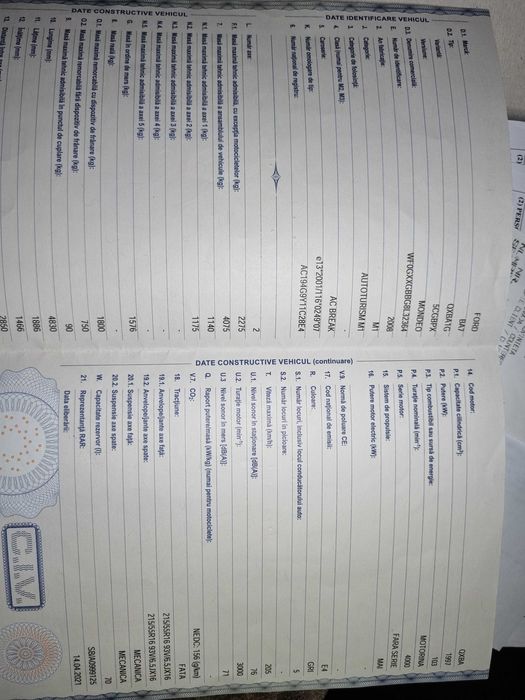 DATE IDENTIFICARE VEHICUL
D.1. Marcă: FORD
D.2. Tip: BA7
Variantă: QXBA1C
Versiune: 5CGBPX
D.3. Denumire comercială: MONDEO
E. Număr de identificare:
2. An fabricație: 2008
J. Categorie: M1
3. Categoria de folosință: AUTOTURISM M1
4. Clasă (numai pentru M2, M3): -
5. Caroserie: AC BREAK
K. Număr omologare de tip: e13*2001/116*0249*07
6. Număr național de registru: AC194G9Y11C28E4
DATE CONSTRUCTIVE VEHICUL
L. Număr axe: 2
F.1. Masă maximă tehnic admisibilă, cu excepția motocicletelor (kg): 2275
7. Masă maximă tehnic admisibilă a ansamblului de vehicule (kg): 4075
N.1. Masă maximă tehnic admisibilă a axei 1 (kg): 1140
N.2. Masă maximă tehnic admisibilă a axei 2 (kg): 1175
N.3. Masă maximă tehnic admisibilă a axei 3 (kg): -
N.4. Masă maximă tehnic admisibilă a axei 4 (kg): -
N.5. Masă maximă tehnic admisibilă a axei 5 (kg): -
G. Masă în ordine de mers (kg): 1576
8. Masă reală (kg): -
O.1. Masă maximă remorcabilă cu dispozitiv de frânare (kg): 1800
O.2. Masă maximă remorcabilă fără dispozitiv de frânare (kg): 750
9. Masă maximă tehnic admisibilă în punctul de cuplare (kg): 90
10. Lungime (mm): 4830
11. Lățime (mm): 1886
12. Înălțime (mm): 1466
2850
DATE CONSTRUCTIVE VEHICUL (continuare)
14. Cod motor: QXBA
P.1. Capacitate cilindrică (cm³): 1997
P.2. Putere (kW): 103
P.3. Tip combustibil sau sursă de energie: MOTORINA
P.4. Turație nominală (min⁻¹): 4000
P.5. Serie motor: FARA SERIE
15. Sistem de propulsie: MAI
16. Putere motor electric (kW): -
V.9. Normă de poluare CE: -
17. Cod național de emisii: E4
R. Culoare: GRI
S.1. Număr locuri, inclusiv locul conducătorului auto: 5
S.2. Număr locuri în picioare: -
T. Viteză maximă (km/h): 205
U.1. Nivel sonor în staționare [dB(A)]: 76
U.2. Turație motor (min⁻¹): 3000
U.3 Nivel sonor în mers [dB(A)]: 71
Q. Raport putere/masă (kW/kg) (numai pentru motociclete): -
V.7. CO₂: NEDC: 156 (g/km)
18. Tracțiune: FATA
19.1. Anvelope/jante axe față: 215/55R16 93V/6.5JX16
19.2. Anvelope/jante axe spate: 215/55R16 93V/6.5JX16
20.1. Suspensie axe față: MECANICA
20.2. Suspensie axe spate: MECANICA
W. Capacitate rezervor (l): 70
21. Reprezentanță RAR: SB/A0999125
Data eliberării: 14.04.2021
C.I.V.